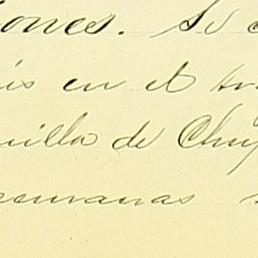 ones. Su
is en el
illa de Chu
semanas